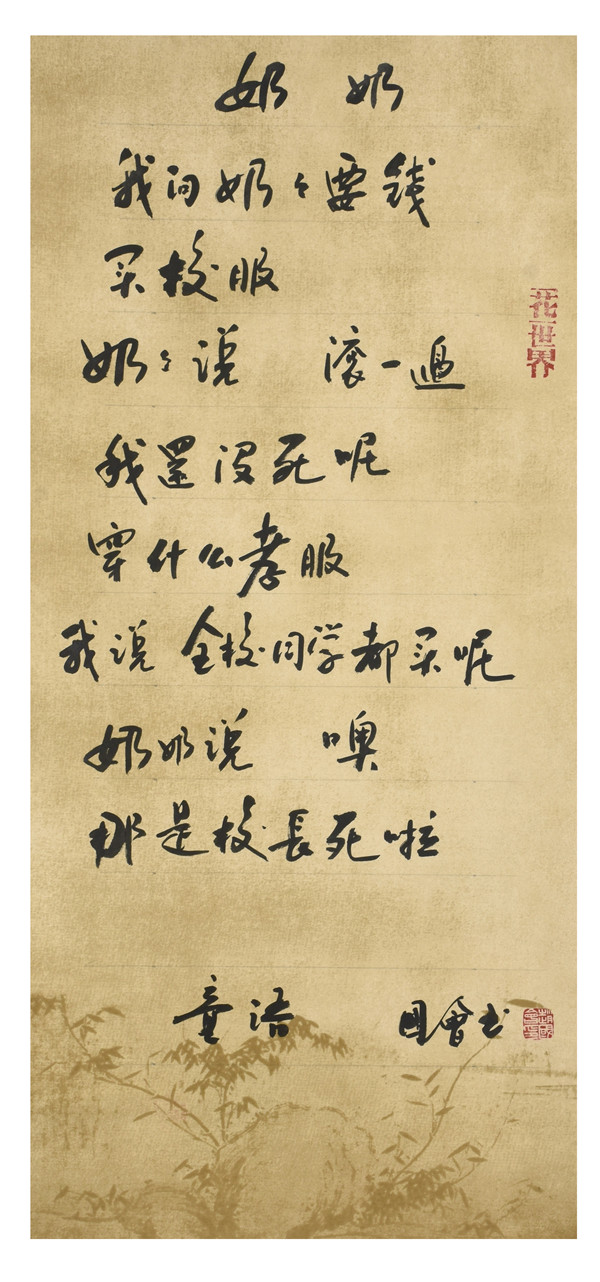 奶 奶
我问奶々要錢
买校服
奶々说 滚一邊
我還没死呢
穿什么孝服
我说 全校同学都买呢
奶奶说 噢
那是校長死啦
童语 国會书
一花一世界